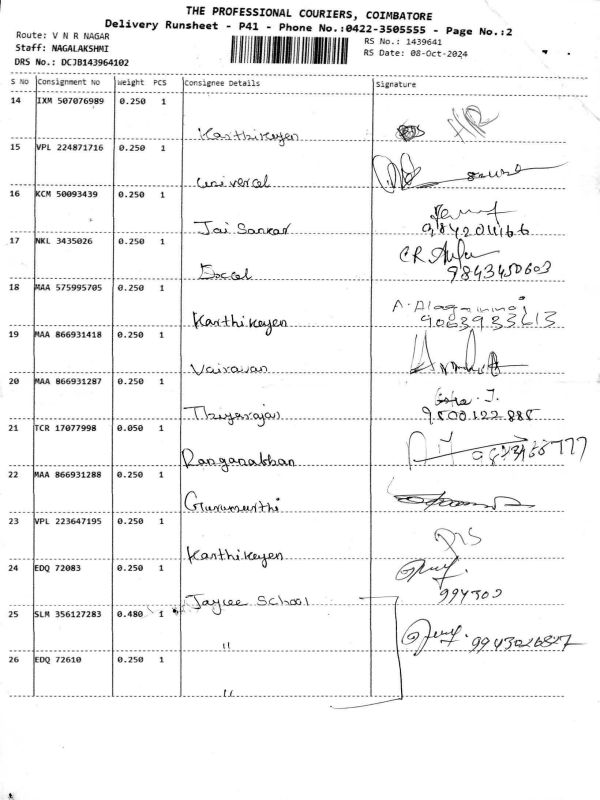 THE PROFESSIONAL COURIERS, COIMBATORE
Delivery Runsheet - P41 - Phone No.:0422-3505555 - Page No.:2
Route: V N R NAGAR
RS No.: 1439641
Staff: NAGALAKSHMI
RS Date: 08-Oct-2024
DRS No.: DCJB143964102
S No Consignment No Weight PCS Consignee Details Signature
14 IXM 507076989 0.250 1
Karthikeyen
15 VPL 224871716 0.250 1
Universal
16 KCM 50093439 0.250 1
Jai Sankar 9842011166
17 NKL 3435026 0.250 1
Excel 9843450603
18 MAA 575995705 0.250 1
Karthikeyen 9063933613
19 MAA 866931418 0.250 1
Vairavan
20 MAA 866931287 0.250 1
Thiyarajan 9500122885
21 TCR 17077998 0.050 1
Ranganathan
22 MAA 866931288 0.250 1
Gurumurthi
23 VPL 223647195 0.250 1
Karthikeyen
24 EDQ 72083 0.250 1
Jaycee School 994302
25 SLM 356127283 0.480 1
" 9943026827
26 EDQ 72610 0.250 1
"